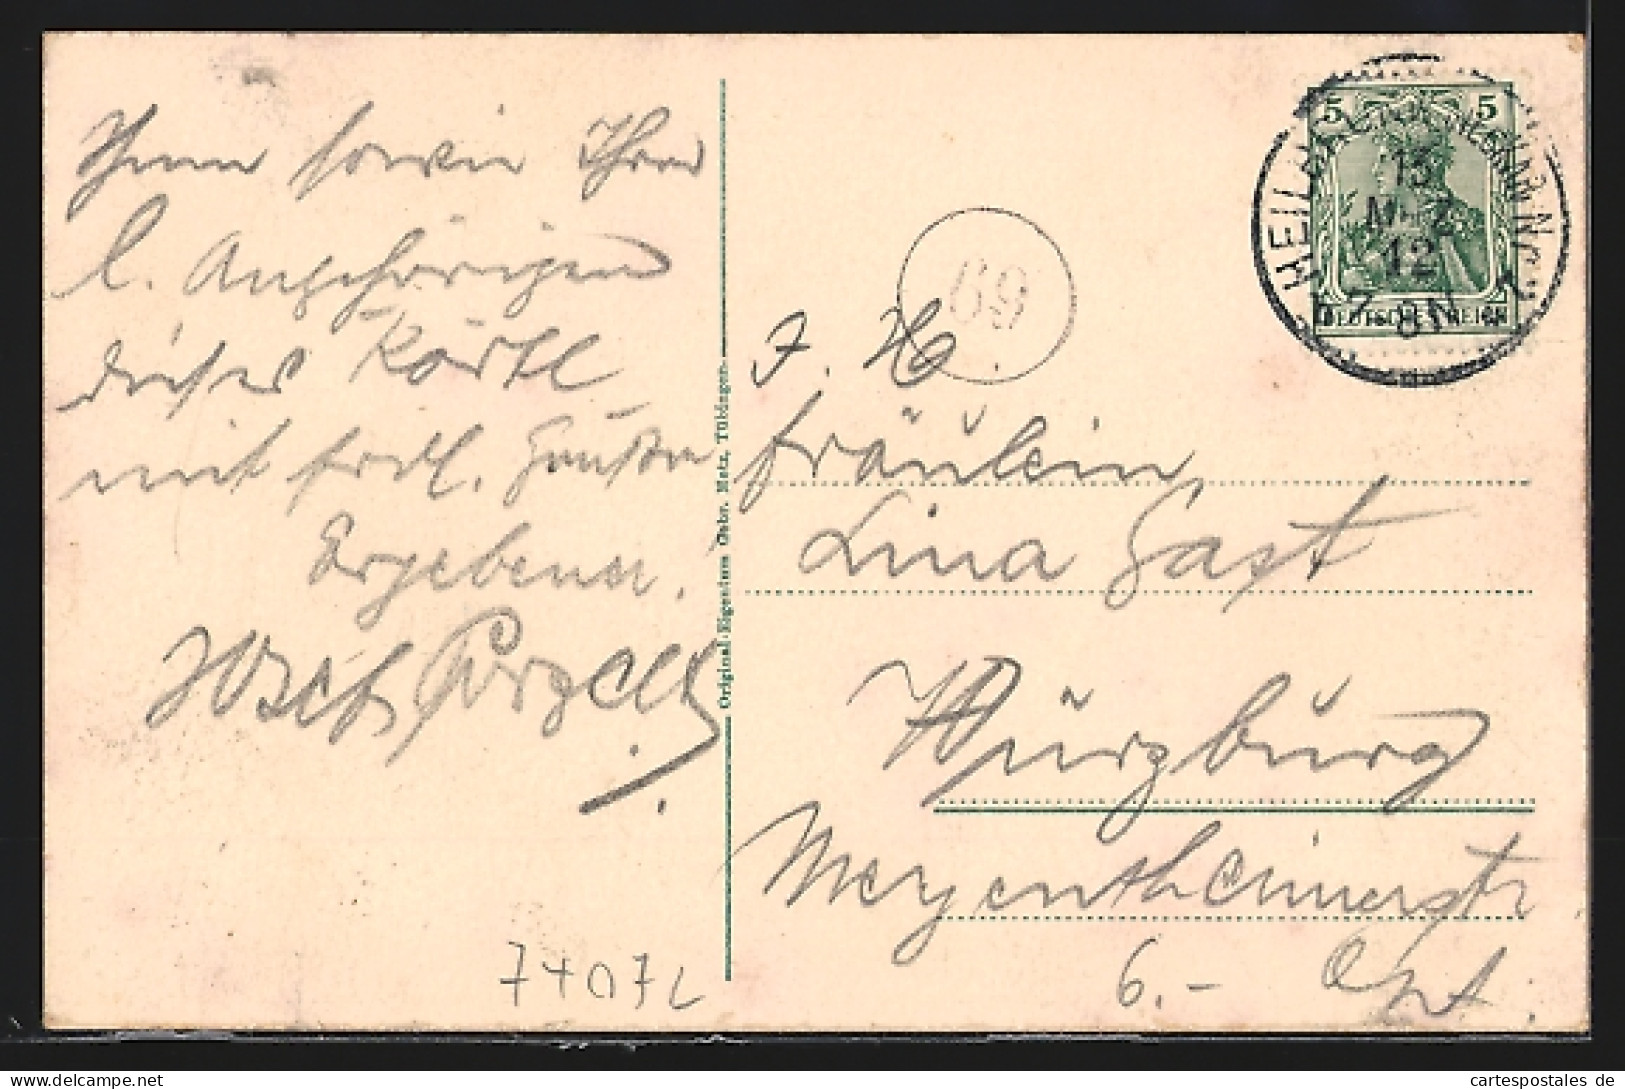 Ihnen sowie Ihren
l. Angehörigen
dieses Kartl
mit frdl. Grüßen
Ergebener.
Josef
Original-Eigentum Gebr. Metz, Tübingen.
69
J. H.
Fräulein
Lina Gast
Würzburg
Mergentheimerstr.
6.-
74072
5 5
DEUTSCHES REICH
HEILBRONN
13
MRZ
12
7-8N
cartespostales de